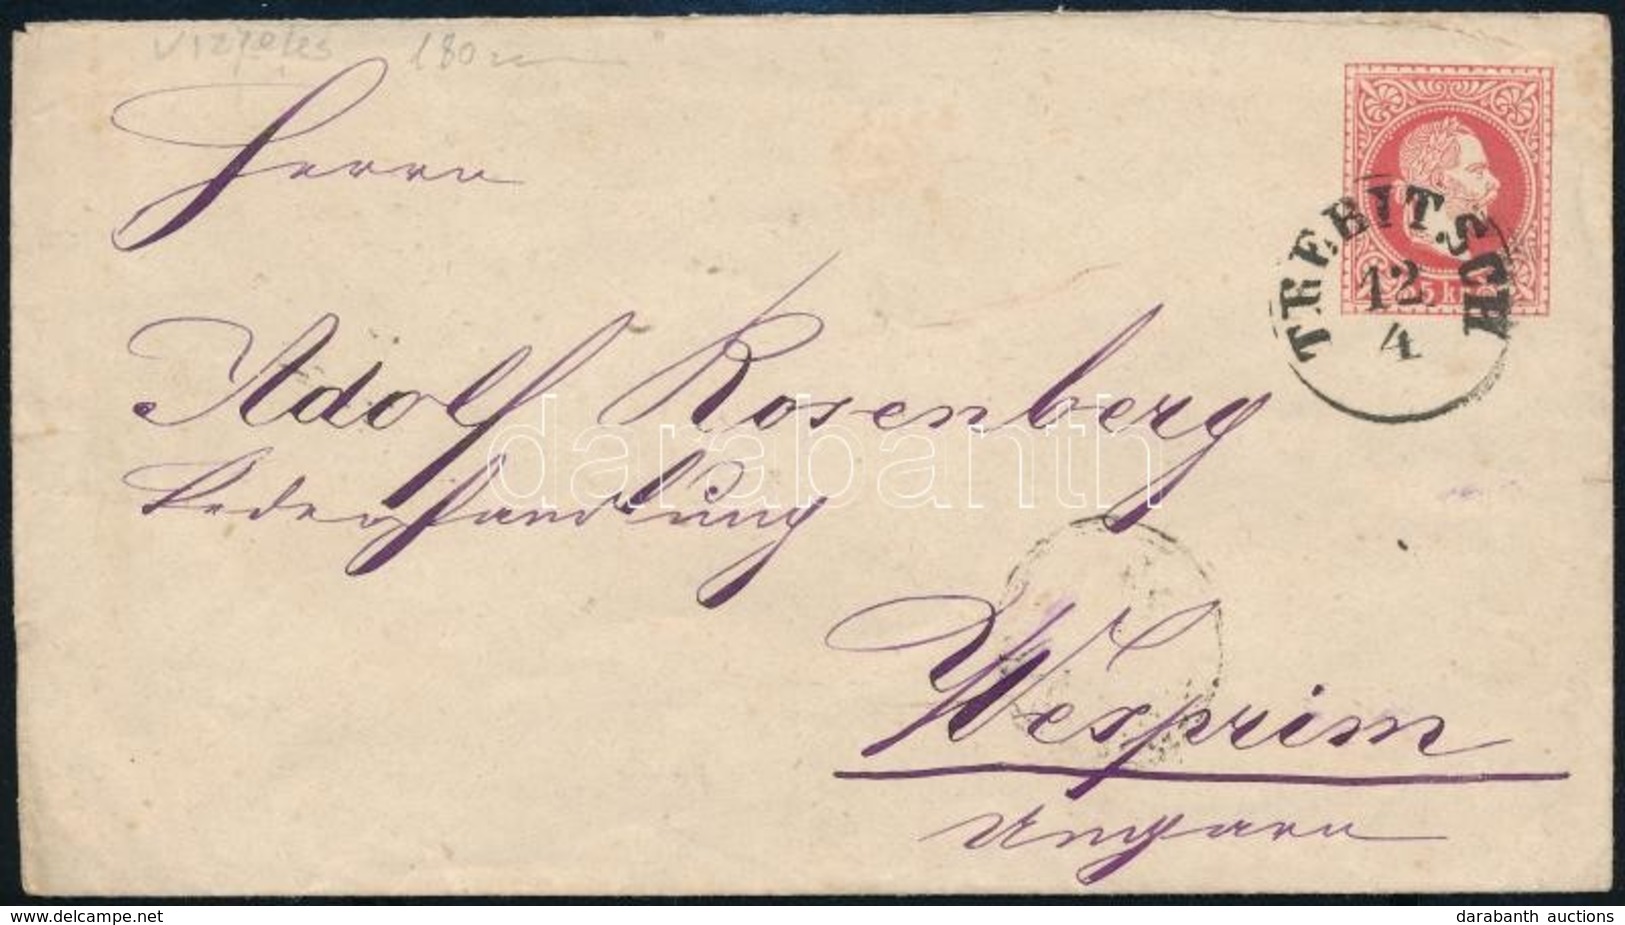 Vizjeles 180
Herrn
Adolf Rosenberg
Lederhandlung
Wesprim
Ungarn
TREBITSCH
12
4
5 kr
darabanth
delcampe.net
darabanth auctions